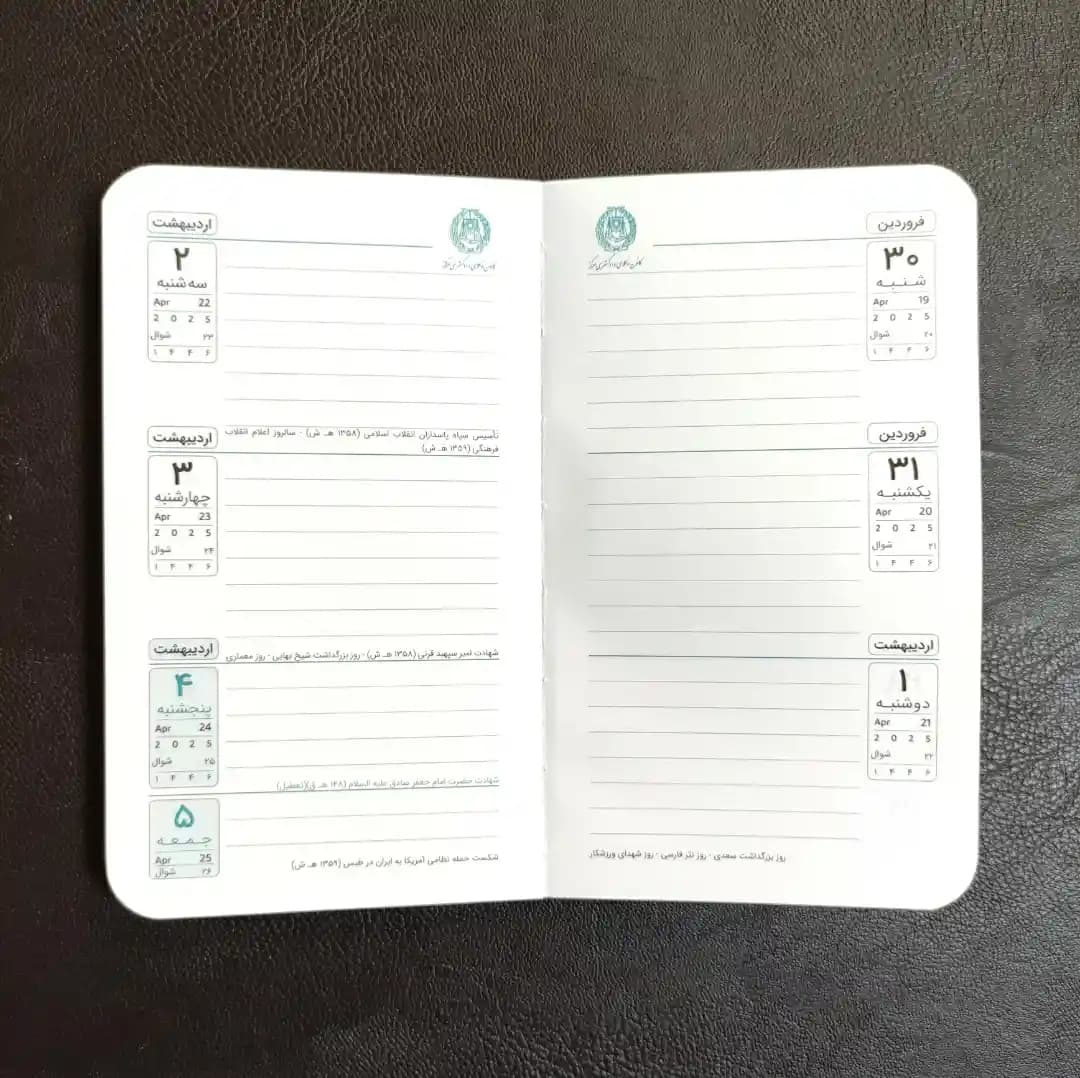 فروردین
۳۰
شنبه
Apr 19
2 0 2 5
شوال ۲۰
۱ ۴ ۴ ۶
فروردین
۳۱
یکشنبه
Apr 20
2 0 2 5
شوال ۲۱
۱ ۴ ۴ ۶
اردیبهشت
۱
دوشنبه
Apr 21
2 0 2 5
شوال ۲۲
۱ ۴ ۴ ۶
روز بزرگداشت سعدی - روز نثر فارسی - روز شهدای ورزشکار
اردیبهشت
۲
سه شنبه
Apr 22
2 0 2 5
شوال ۲۳
۱ ۴ ۴ ۶
اردیبهشت
تأسیس سپاه پاسداران انقلاب اسلامی (۱۳۵۸ هـ ش) - سالروز اعلام انقلاب
فرهنگی (۱۳۵۹ هـ ش)
۳
چهارشنبه
Apr 23
2 0 2 5
شوال ۲۴
۱ ۴ ۴ ۶
اردیبهشت
شهادت امیر سپهبد قرنی (۱۳۵۸ هـ ش) - روز بزرگداشت شیخ بهایی - روز معماری
۴
پنجشنبه
Apr 24
2 0 2 5
شوال ۲۵
۱ ۴ ۴ ۶
شهادت حضرت امام جعفر صادق علیه السلام (۱۴۸ هـ ق)(تعطیل)
۵
جمعه
Apr 25
شوال ۲۶
شکست حمله نظامی آمریکا به ایران در طبس (۱۳۵۹ هـ ش)